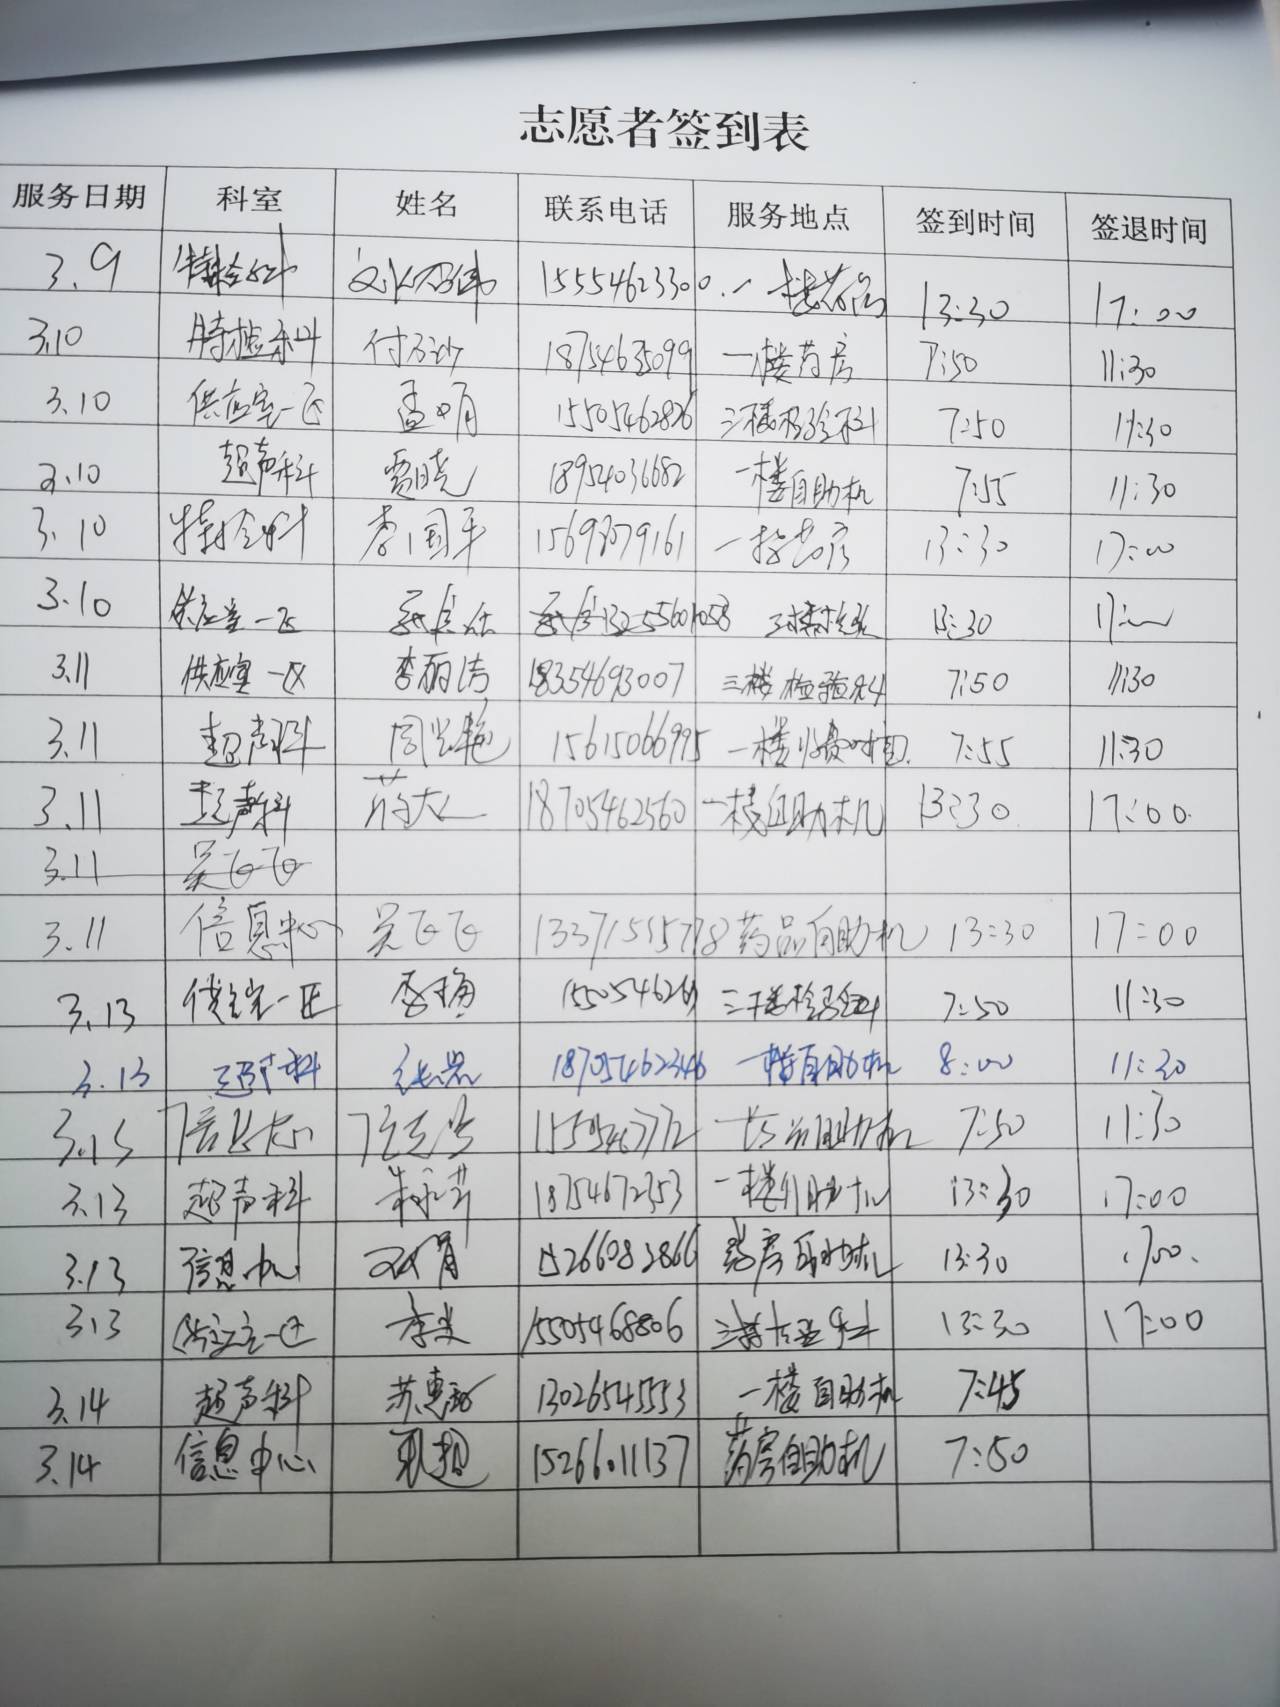 志愿者签到表
服务日期 科室 姓名 联系电话 服务地点 签到时间 签退时间
3.9 特检科 15554623300 一楼药房 13:30 17:00
3.10 特检科 18754635099 一楼药房 7:50 11:30
3.10 供应室一区 孟明 15505462826 三楼检验科 7:50 11:30
3.10 超声科 贾晓 18954036682 一楼自助机 7:55 11:30
3.10 特检科 李国平 一楼药房 13:30 17:00
3.10 供应室一区 13255601058 三楼检验 13:30 17:00
3.11 供应室一区 李丽洁 18354693007 三楼检验科 7:50 11:30
3.11 超声科 周兴艳 15615066995 一楼收费 7:55 11:30
3.11 超声科 蒋大 18705462560 一楼自助机 13:30 17:00
3.11 吴飞飞
3.11 信息中心 吴飞飞 13371515778 药品自助机 13:30 17:00
3.13 供应室一区 李梅 三楼检验科 7:50 11:30
3.13 超声科 18705462346 一楼自助机 8:00 11:30
3.13 信息中心 自助机 7:50 11:30
3.13 超声科 朱永芹 18754672353 一楼自助机 13:30 17:00
3.13 信息中心 15266082866 药房自助机 13:30 17:00
3.13 供应室一区 15505468806 13:30 17:00
3.14 超声科 苏惠 13026545553 一楼自助机 7:45
3.14 信息中心 耿超 15266011137 药房自助机 7:50